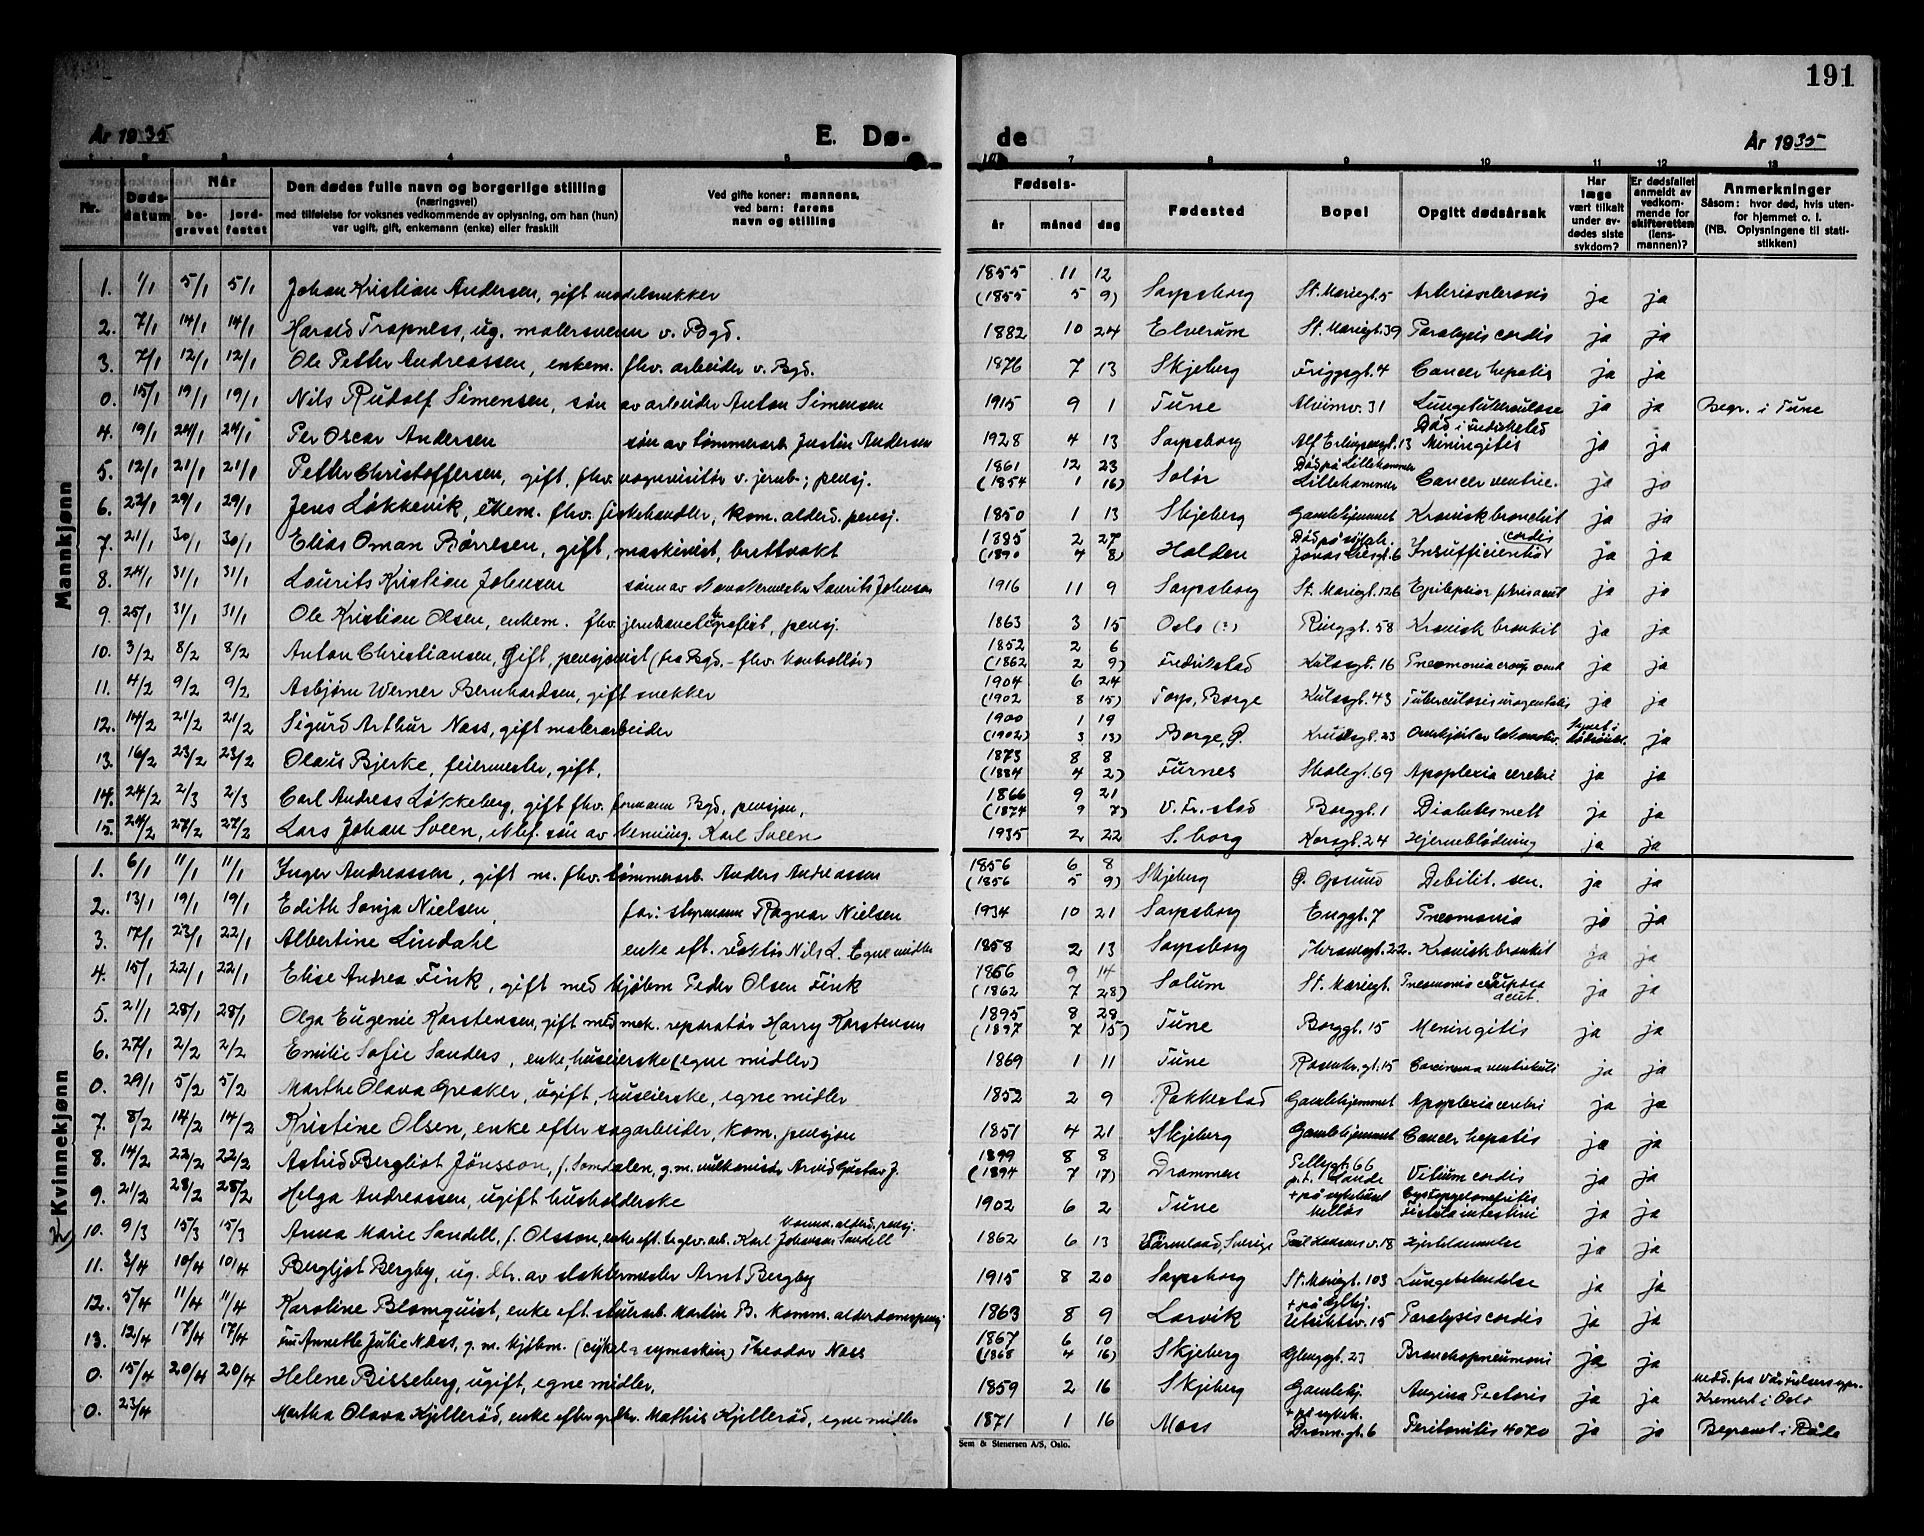 191
År 1935 E. Dø- de År 1935
Nr. Dødsdatum Når begravet jordfestet
Den dødes fulle navn og borgerlige stilling (næringsvei) med tilføielse for voksnes vedkommende av oplysning, om han (hun) var ugift, gift, enkemann (enke) eller fraskilt
Ved gifte koner: mannens, ved barn: farens navn og stilling
Fødsels- år måned dag Fødested Bopel Opgitt dødsårsak
Har læge vært tilkalt under avdødes siste sykdom?
Er dødsfallet anmeldt av vedkommende for skifteretten (lensmannen)?
Anmerkninger Såsom: hvor død, hvis utenfor hjemmet o. l. (NB. Oplysningene til statistikken)
Mannkjønn
1. 1/1 5/1 5/1 Johan Kristian Andersen, gift modelsnekker 1855 11 12 (1855 5 9) Sarpsborg St. Mariegt. 5 Arteriosclerosis ja ja
2. 7/1 14/1 14/1 Harald Trapness, ug. malersvenn v. Bgd. 1882 10 24 Elverum St. Mariegt. 39 Paralysis cordis ja ja
3. 7/1 12/1 12/1 Ole Petter Andreassen, enkem. fhv. arbeider v. Bgd. 1876 7 13 Skjeberg Friggsgt. 4 Cancer hepatis ja ja
0. 15/1 19/1 19/1 Nils Rudolf Simensen, søn av arbeider Anton Simensen 1915 9 1 Tune Alvimv. 31 Lungetuberculose ja ja Begr. i Tune
4. 19/1 24/1 24/1 Per Oscar Andersen søn av tømmerarb. Justin Andersen 1928 4 13 Sarpsborg Alf Erlingsensgt. 13 Død i Fredrikstad Miningitis ja ja
5. 12/1 21/1 21/1 Petter Christoffersen, gift, fhv. vognvisitør v. jernb., pensj. 1861 12 23 (1854 1 16) Solør Død på Lillehammer Lillehammer Cancer ventric. ja ja
6. 22/1 29/1 29/1 Jens Løkkevik, enkem. fhv. fiskehandler, kom. alderd. pensj. 1850 1 13 Skjeberg Gamlehjemmet Kronisk bronchit ja ja
7. 21/1 30/1 30/1 Elias Oman Børresen, gift, maskinist, brettvakt 1885 2 27 (1890 4 8) Halden Død på sykeh. Jonas Liesgt. 6 Insufficientia cordis ja ja
8. 24/1 31/1 31/1 Laurits Kristian Johansen sønn av Laurits Johansen 1916 11 9 Sarpsborg St. Mariegt. 126 Epilepsior ja ja
9. 25/1 31/1 31/1 Ole Kristian Olsen, enkem. fhv. jernbanetelegrafist, pensj. 1863 3 15 Oslo (?) Ringgt. 58 Kronisk bronkit ja ja
10. 3/2 8/2 8/2 Anton Christiansen, gift, pensjonist (fra Bgd. - fhv. kontrollør) 1852 2 6 (1862 2 9) Fredrikstad Kulåsgt. 16 Pneumonia croup. ja ja
11. 4/2 9/2 9/2 Asbjørn Werner Bernhardsen, gift snekker 1904 6 24 (1902 8 15) Torp, Borge Kulåsgt. 43 Tuberculosis urogentalis ja ja
12. 14/2 21/2 21/2 Sigurd Arthur Næss, gift malerarbeider 1900 1 19 (1902) 3 13) Borge, Ø. 23 Overkjørt av lokomotiv. ja
13. 16/2 23/2 23/2 Olaus Bjerke, feiermester, gift, 1873 8 8 (1884 4 2) Furnes Skolegt. 69 Apoplexia cerebri ja ja
14. 24/2 2/3 2/3 Carl Andreas Løkkeberg, gift fhv. formann Bgd., pensjon, 1866 9 21 (1874 9 7) V. Fr. stad Borggt. 1 Diabetes mell ja ja
15. 24/2 27/2 27/2 Lars Johan Sveen, søn av Karl Sveen 1935 2 22 S. borg Korsgt. 24 Hjerneblødning ja ja
Kvinnekjønn
1. 6/1 11/1 11/1 Inger Andreassen, gift m. fhv. tømmerarb. Anders Andreassen 1856 6 8 (1856 5 9) Skjeberg Ø. Opsund Debilit. sen. ja ja
2. 13/1 19/1 19/1 Edith Sonja Nielsen, far: styrmann Ragnar Nielsen 1934 10 21 Sarpsborg Enggt. 7 Pneumonia ja ja
3. 17/1 23/1 22/1 Albertine Lindahl enke eft. rektor Nils L. Egne midler 1858 2 13 Sarpsborg Thranesgt. 22. Kronisk bronkit ja ja
4. 15/1 22/1 22/1 Elise Andrea Fink, gift med kjøbm Peder Olsen Fink 1856 9 14 (1862 7 28) Solum St. Mariegt. Pneumonia crouposa acut. ja ja
5. 21/1 28/1 28/1 Olga Eugenie Karstensen, gift med mek. reparatør Harry Karstensen 1895 8 29 (1897 7 15) Tune Borggt. 15 Meningitis ja ja
6. 27/1 2/2 2/2 Emilie Sofie Sanders, enke, huseierske (egne midler) 1869 1 11 Tune Rosenkr. gt. 15 Carcinoma ventriculi ja ja
0. 29/1 5/2 5/2 Marthe Olava Greaker, ugift, huseierske, egne midler 1852 2 9 Rakkestad Gamlehjemmet Apoplexia cerebri ja ja
7. 8/2 14/2 14/2 Kristine Olsen, enke efter sagarbeider, kom. pensjon 1851 4 21 Skjeberg Gamlehjemmet Cancer hepatis ja ja
8. 14/2 22/2 22/2 Astrid Bergliot Jønsson, f. Somdalen, g. m. vulkanisør Arvid Gustav J. 1899 8 8 (1894 7 17) Drammen Pellygt. 66 p.t. Sande Vitium cordis ja ja
9. 21/2 28/2 28/2 Helga Andreassen, ugift husholderske 1902 6 2 Tune + på sykehuset Cystopyelonefritis Fistula intestini ja ja
10. 9/3 15/3 15/3 Anna Marie Sandell, f. Olsson, enke eft. teglv. arb. Karl Johansen Sandell komm. alderd. pensj. 1862 6 13 Värmland, Sverige v. 18 Hjertelammelse ja ja
11. 3/4 10/4 10/4 Bergljot Bergby, ug. dtr. av slaktermester Arnt Bergby 1915 8 20 Sarpsborg St. Mariegt. 103 Lungebetendelse ja ja
12. 5/4 11/4 11/4 Karoline Blomquist, enke eft. Martin B. komm. alderdomspensj. 1863 8 9 Larvik + på Glhj. Utsiktsv. 15 Paralysis cordis ja ja
13. 12/4 17/4 17/4 Fru Annette Julie Næss, g. m. kjøbm. (cykel & symaskin) Theodor Næss 1867 6 10 (1868 4 16) Skjeberg Glenggt. 23 Bronchopneumoni ja ja
0. 15/4 20/4 20/4 Helene Bisseberg, ugift, egne midler, 1859 2 16 Skjeberg Gamlehj. Angina Pectoris ja ja Kremert i Oslo
0. 23/4 Martha Olava Kjellerød, enke efter gdbr. Mathis Kjellerød, egne midler 1871 1 16 Moss + på sykeh. Dronn. gt. 6 Peritonitis 4070 ja ja Begravet i Råde
Sem & Stenersen A/S, Oslo.